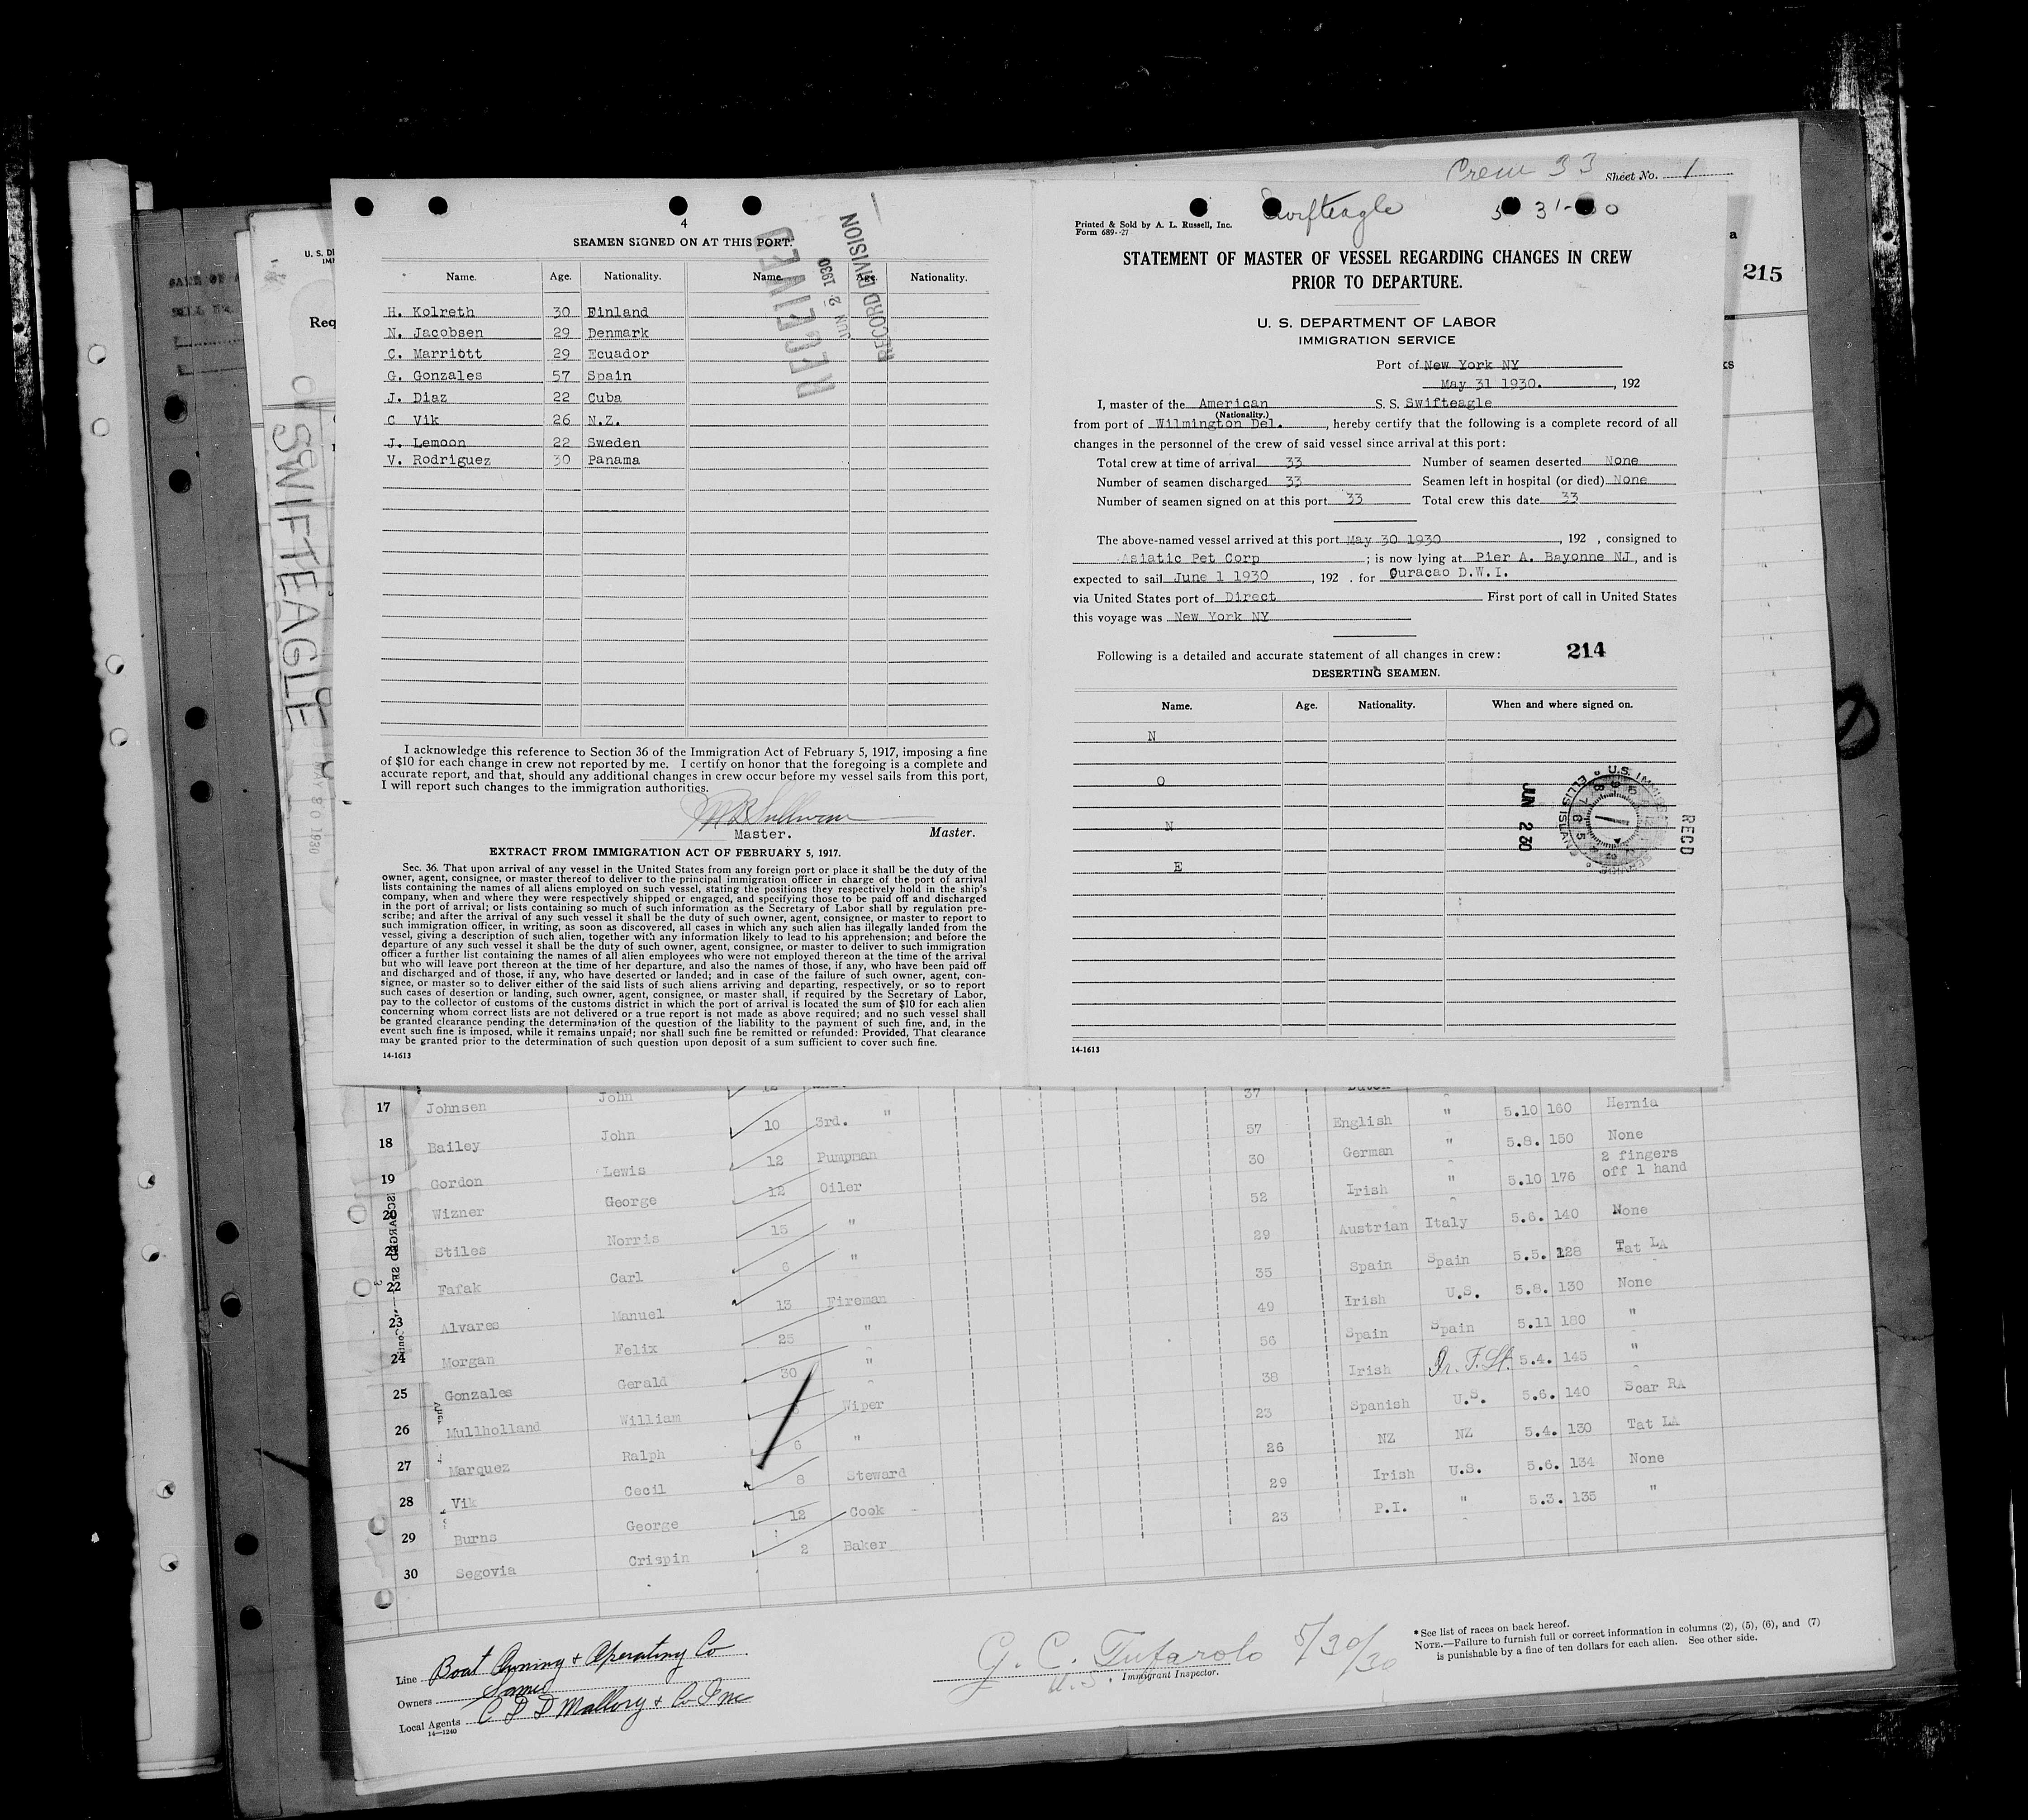 Crew 33 Sheet No. 1
215
U. S. DE
Req
SWIFTEAGLE
MAY 30 1930
4
SEAMEN SIGNED ON AT THIS PORT.
RECEIVED
JUN 2 1930
RECORD DIVISION
Name. Age. Nationality. Name. Age. Nationality.
H. Kolreth 30 Finland
N. Jacobsen 29 Denmark
C. Marriott 29 Ecuador
G. Gonzales 57 Spain
J. Diaz 22 Cuba
C Vik 26 N.Z.
J. Lemoon 22 Sweden
V. Rodriguez 30 Panama
I acknowledge this reference to Section 36 of the Immigration Act of February 5, 1917, imposing a fine
of $10 for each change in crew not reported by me. I certify on honor that the foregoing is a complete and
accurate report, and that, should any additional changes in crew occur before my vessel sails from this port,
I will report such changes to the immigration authorities.
Sullivan
Master. Master.
EXTRACT FROM IMMIGRATION ACT OF FEBRUARY 5, 1917.
Sec. 36. That upon arrival of any vessel in the United States from any foreign port or place it shall be the duty of the
owner, agent, consignee, or master thereof to deliver to the principal immigration officer in charge of the port of arrival
lists containing the names of all aliens employed on such vessel, stating the positions they respectively hold in the ship's
company, when and where they were respectively shipped or engaged, and specifying those to be paid off and discharged
in the port of arrival; or lists containing so much of such information as the Secretary of Labor shall by regulation pre-
scribe; and after the arrival of any such vessel it shall be the duty of such owner, agent, consignee, or master to report to
such immigration officer, in writing, as soon as discovered, all cases in which any such alien has illegally landed from the
vessel, giving a description of such alien, together with any information likely to lead to his apprehension; and before the
departure of any such vessel it shall be the duty of such owner, agent, consignee, or master to deliver to such immigration
officer a further list containing the names of all alien employees who were not employed thereon at the time of the arrival
but who will leave port thereon at the time of her departure, and also the names of those, if any, who have been paid off
and discharged and of those, if any, who have deserted or landed; and in case of the failure of such owner, agent, con-
signee, or master so to deliver either of the said lists of such aliens arriving and departing, respectively, or so to report
such cases of desertion or landing, such owner, agent, consignee, or master shall, if required by the Secretary of Labor,
pay to the collector of customs of the customs district in which the port of arrival is located the sum of $10 for each alien
concerning whom correct lists are not delivered or a true report is not made as above required; and no such vessel shall
be granted clearance pending the determination of the question of the liability to the payment of such fine, and, in the
event such fine is imposed, while it remains unpaid; nor shall such fine be remitted or refunded: Provided, That clearance
may be granted prior to the determination of such question upon deposit of a sum sufficient to cover such fine.
14-1613
Swifteagle
Printed & Sold by A. L. Russell, Inc.
Form 689--27
STATEMENT OF MASTER OF VESSEL REGARDING CHANGES IN CREW
PRIOR TO DEPARTURE.
U. S. DEPARTMENT OF LABOR
IMMIGRATION SERVICE
Port of New York NY
May 31 1930. , 192
I, master of the American S. S. Swifteagle
(Nationality.)
from port of Wilmington Del. , hereby certify that the following is a complete record of all
changes in the personnel of the crew of said vessel since arrival at this port:
Total crew at time of arrival 33 Number of seamen deserted None
Number of seamen discharged 33 Seamen left in hospital (or died) None
Number of seamen signed on at this port 33 Total crew this date 33
The above-named vessel arrived at this port May 30 1930 , 192 , consigned to
Asiatic Pet Corp ; is now lying at Pier A. Bayonne NJ , and is
expected to sail June 1 1930 , 192 . for Curacao D.W.I.
via United States port of Direct First port of call in United States
this voyage was New York NY
Following is a detailed and accurate statement of all changes in crew: 214
DESERTING SEAMEN.
Name. Age. Nationality. When and where signed on.
N
O
N
E
JUN 2 30
RECD
14-1613
17 Johnsen John 12 37 Dutch
18 Bailey John 10 3rd. " 57 English " 5.10 160 Hernia
19 Gordon Lewis 12 Pumpman 30 German " 5.8. 150 None
20 Wizner George 12 Oiler 52 Irish " 5.10 176 2 fingers off 1 hand
21 Stiles Norris 15 " 29 Austrian Italy 5.6. 140 None
22 Fafak Carl 6 " 35 Spain Spain 5.5. 128 Tat LA
23 Alvares Manuel 13 Fireman 49 Irish U.S. 5.8. 130 None
24 Morgan Felix 25 " 56 Spain Spain 5.11 180 "
25 Gonzales Gerald 30 " 38 Irish 5.4. 145 "
26 Mullholland William Wiper 23 Spanish U.S. 5.6. 140 Scar RA
27 Marquez Ralph 6 " 26 NZ NZ 5.4. 130 Tat LA
28 Vik Cecil 8 Steward 29 Irish U.S. 5.6. 134 None
29 Burns George 12 Cook 23 P.I. " 5.3. 135 "
30 Segovia Crispin 2 Baker
Line Boat Owning & Operating Co
Owners Same
Local Agents C D Mallory & Co Inc
14—1240
G. C. Tufarolo 5/30/30
U.S. Immigrant Inspector.
* See list of races on back hereof.
NOTE.—Failure to furnish full or correct information in columns (2), (5), (6), and (7)
is punishable by a fine of ten dollars for each alien. See other side.